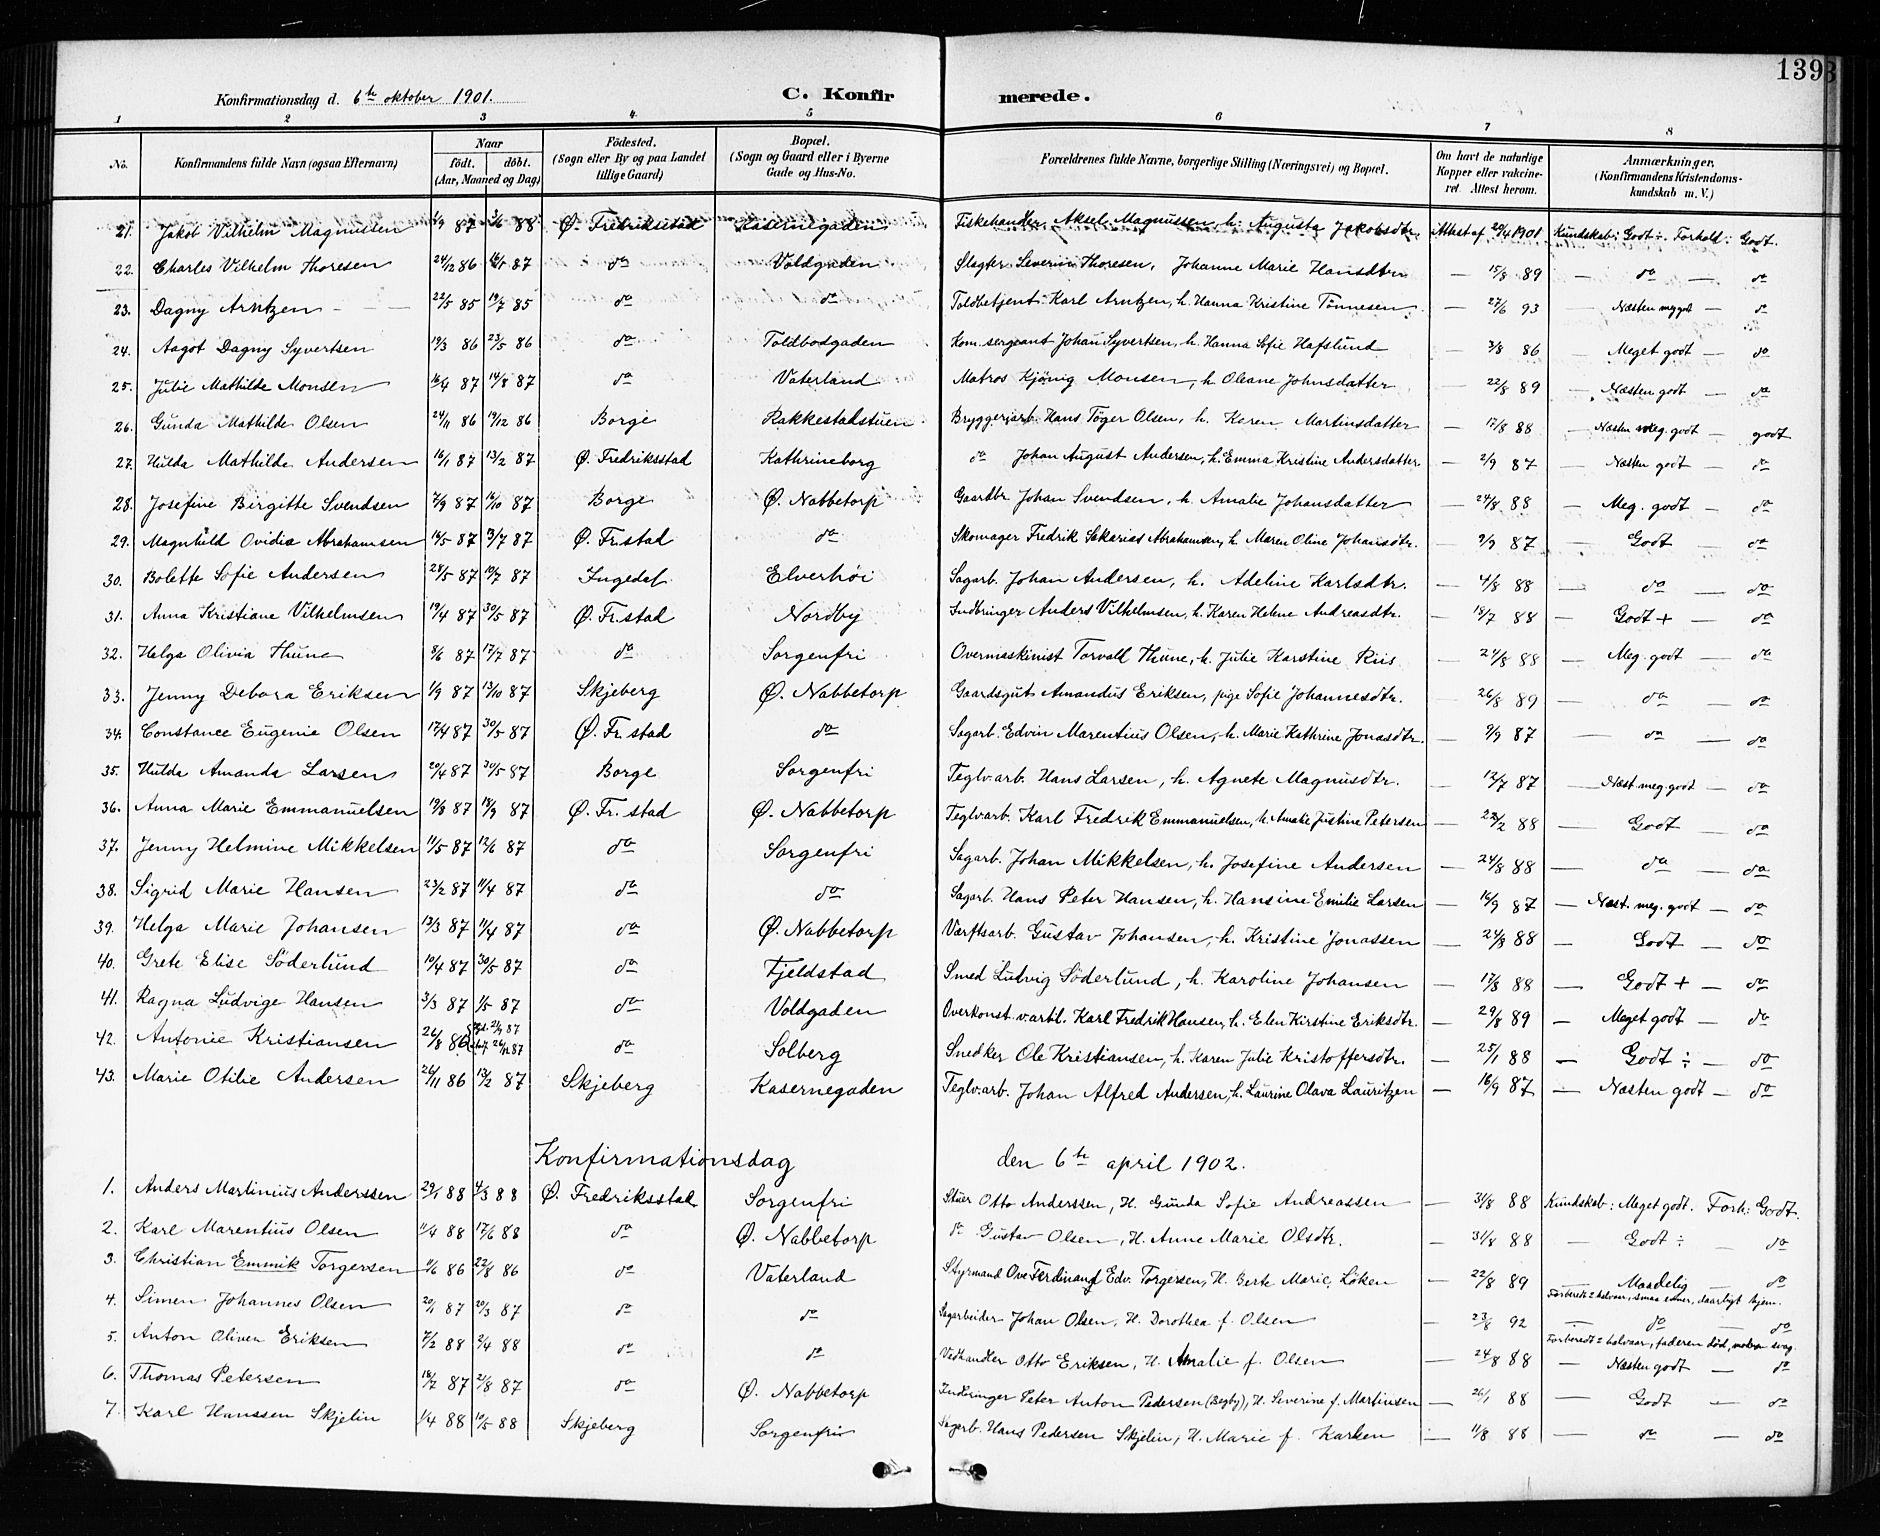 139
Konfirmationsdag d. 6te oktober 1901.
C. Konfirmerede.
1 2 3 4 5 6 7 8
No. | Konfirmandens fulde Navn (ogsaa Efternavn) | Naar födt. döbt. (Aar, Maaned og Dag) | Födested. (Sogn eller By og paa Landet tillige Gaard) | Bopæl. (Sogn og Gaard eller i Byerne Gade og Hus-No. | Forældrenes fulde Navne, borgerlige Stilling (Næringsvei) og Bopæl. | Om havt de naturlige Kopper eller vaccineret. Attest herom. | Anmærkninger. (Konfirmandens Kristendomskundskab m. V.)
21. Jakob Vilhelm Magnussen 1/9 87 3/6 88 Ø. Fredriksstad Kasernegaden Fiskehandler Aksel Magnussen, h. Augusta Jakobsdtr. Attest af 29/4 1901 Kundskab: Godt ÷. Forhold: Godt.
22. Charles Vilhelm Thoresen 24/12 86 87 do Voldgaden Slagter Severin Thoresen, Johanne Marie Hansdtr — 15/8 89 — do — do
23. Dagny Arntzen 22/5 85 19/7 85 do do Toldbetjent Karl Arntzen, h. Hanna Kristine Tönnesen — 27/6 93 — Næsten meg godt — do
24. Aagot Dagny Syvertsen 19/3 86 23/5 86 do Toldbodgaden Kom. sergeant Johan Syvertsen, h. Hanna Sofie Hafslund — 3/8 86 — Meget godt — do
25. Julie Mathilde Monsen 16/4 87 14/8 87 do Vaterland Matros Kjönig Monsen, h. Oleane Johnsdatter — 22/8 89 — Næsten godt — do
26. Gunda Mathilde Olsen 24/11 86 19/12 86 Borge Rakkestadstuen Bryggeriarb. Hans Töger Olsen, h. Karen Martinsdatter — 17/8 88 — Næsten meg. godt — godt
27. Hulda Mathilde Andersen 16/1 87 13/2 87 Ø. Fredriksstad Kathrineborg do Johan August Andersen, h. Emma Kristine Andersdatter — 2/9 87 — Næsten godt — do
28. Josefine Birgitte Svendsen 7/9 87 16/10 87 Borge Ø. Nabbetorp Gaardbr. Johan Svendsen, h. Amalie Johansdatter — 24/8 88 — Meg. godt — do
29. Magnhild Ovidia Abrahamsen 16/5 87 17/7 87 Ø. Fr.stad do Skomager Fredrik Sakarias Abrahamsen, h. Maren Oline Johansdtr. — 9/9 87 — Godt — do
30. Bolette Sofie Andersen 28/5 87 19/7 87 Ingedal Elverhöi Sagarb. Johan Andersen, h. Adeline Karlsdtr. — 4/8 88 — do — do
31. Anna Kristiane Vilhelmsen 19/4 87 30/5 87 Ø. Fr.stad Nordby Indbringer Anders Vilhelmsen, h. Karen Helene Andreasdtr. — 18/7 88 — Godt + — do
32. Helga Olivia Thune 8/6 87 17/7 87 do Sorgenfri Overmaskinist Torvall Thune, h. Julie Karstine Riis — 24/8 88 — Meg. godt — do
33. Jenny Debora Eriksen 1/9 87 13/10 87 Skjeberg Ø. Nabbetorp Gaardsgut Amandus Eriksen, pige Sofie Johannesdtr. — 26/8 89 — do — do
34. Constance Eugenie Olsen 17/4 87 30/5 87 Ø. Fr. stad do Sagarb. Edvin Marentius Olsen, h. Marie Kathrine Jonasdtr. — 9/9 87 — do — do
35. Hulda Amanda Larsen 20/4 87 30/5 87 Borge Sorgenfri Teglv.arb. Hans Larsen, h. Agnete Magnusdtr. — 12/7 87 — Næst. meg. godt — do
36. Anna Marie Emmanuelsen 19/8 87 18/9 87 Ø. Fr. stad Ø. Nabbetorp Teglv.arb. Karl Fredrik Emmanuelsen, h. Amalie Justine Petersen — 28/2 88 — Godt — do
37. Jenny Helmine Mikkelsen 11/5 87 12/6 87 do Sorgenfri Sagarb. Johan Mikkelsen, h. Josefine Andersen — 24/8 88 — do — do
38. Sigrid Marie Hansen 23/2 87 11/4 87 do do Sagarb. Hans Peter Hansen, h. Hansine Emilie Larsen — 16/9 87 — Næst. meg. godt — do
39. Helga Marie Johansen 13/3 87 11/4 87 do Ø. Nabbetorp Værftsarb. Gustav Johansen, h. Kristine Jonassen — 24/8 88 — Godt — do
40. Grete Elise Söderlund 10/4 87 30/5 87 do Fjeldstad Smed Ludvig Söderlund, h. Karoline Johansen — 17/8 88 — Godt + — do
41. Ragna Ludvige Hansen 3/3 87 1/5 87 do Voldgaden Overkonst. vartl. Karl Fredrik Hansen, h. Elen Kirstine Eriksdtr. — 29/8 89 — Meget godt — do
42. Antonie Kristiansen 26/8 86 87 26/12 87 do Solberg Snedker Ole Kristiansen, h. Karen Julie Kristoffersdtr. — 25/1 88 — Godt ÷ — do
43. Marie Otilie Andersen 26/11 86 13/2 87 Skjeberg Kasernegaden Teglv.arb. Johan Alfred Andersen, h. Laurine Olava Lauritzen — 16/9 87 — Næsten godt — do
Konfirmationsdag den 6te april 1902.
1. Anders Martinius Anderssen 29/1 88 4/3 88 Ø. Fredriksstad Sorgenfri Stuer Otto Anderssen, H. Gunda Sofie Andreassen — 31/8 88 Kundskab: Meget godt. Forh: Godt.
2. Karl Marentius Olsen 11/4 88 17/6 88 do Ø. Nabbetorp do Gustav Olsen, H. Anne Marie Olsdtr. — 31/8 88 — Godt ÷ — do
3. Christian Emmik Torgersen 11/6 86 22/8 86 do Vaterland Styrmand Ove Ferdinand Edv. Torgersen, H. Berte Marie Löken — 22/8 89 — Maadelig — do
Forberedt 2 halvaar, smaa evner, daarligt hjem.
4. Simen Johannes Olsen 20/1 87 20/3 87 do do Sagarbeider Johan Olsen, H. Dorothea f. Olsen — 23/8 92 — do — do
Forberedt 2 halvaar, faderen död, moderen svag.
5. Anton Oliven Eriksen 7/2 88 2/4 88 do do Vedhandler Otto Eriksen, H. Amalie f. Olsen — 24/8 88 — Næsten godt — do
6. Thomas Petersen 18/7 87 21/8 87 do Ø. Nabbetorp Indbringer Peter Anton Pedersen (Begby), H. Severine f. Martinsen — 26/1 88 — Godt — do
7. Karl Hanssen Skjelin 1/4 88 10/5 88 Skjeberg Sorgenfri Sagarb. Hans Pedersen Skjelin, H. Marie f. Karlsen — 11/8 88 — do — do